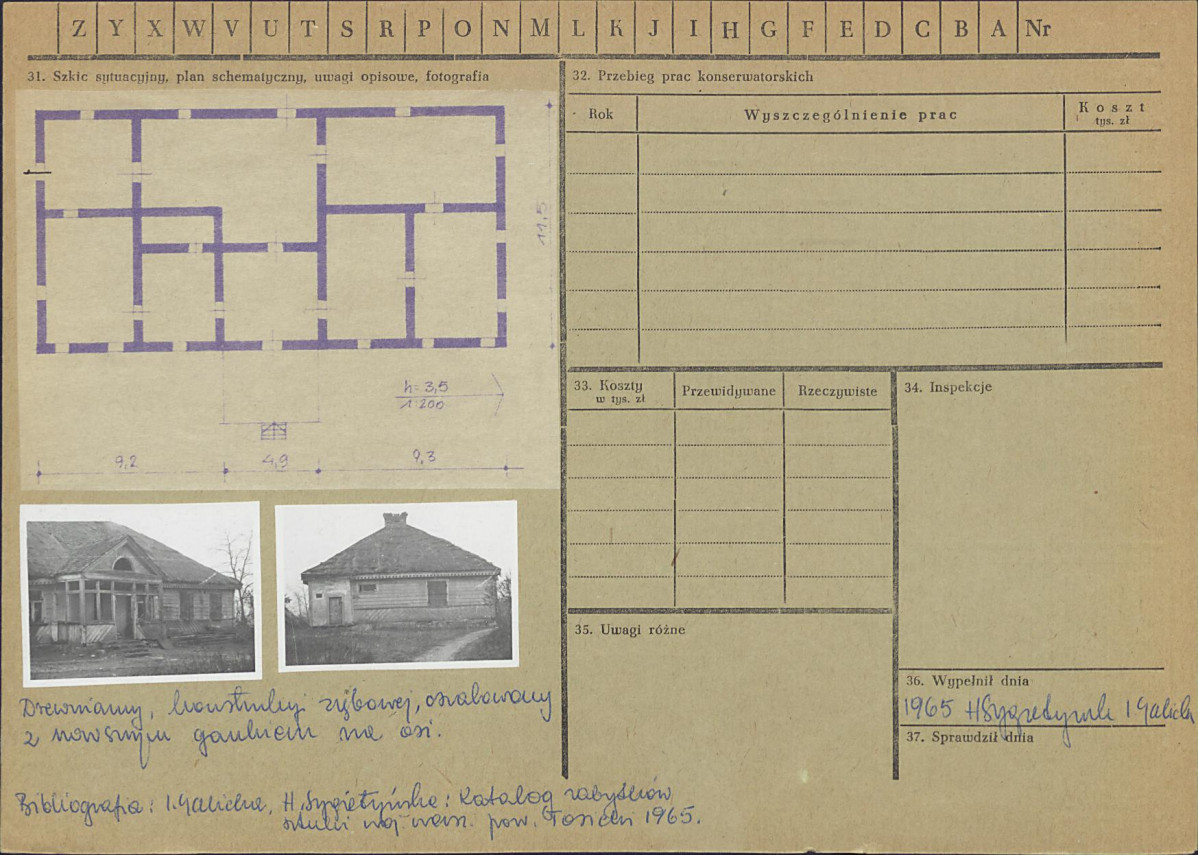 Z Y X W V U T S R P O N M L K J I H G F E D C B A Nr
31. Szkic sytuacyjny, plan schematyczny, uwagi opisowe, fotografia
11,5
h = 3,5
1:200
9,2 4,9 9,3
Drewniany, konstrukcji zrębowej, oszalowany
z nowszym gankiem na osi.
Bibliografia: I. Galicka, H. Sygietyńska: Katalog zabytków
sztuki woj. warsz. pow. Łosicki 1965.
32. Przebieg prac konserwatorskich
Rok Wyszczególnienie prac Koszt
tys. zł
33. Koszty Przewidywane Rzeczywiste
w tys. zł
34. Inspekcje
35. Uwagi różne
36. Wypełnił dnia
1965 H Sygietyńska I Galicka
37. Sprawdził dnia